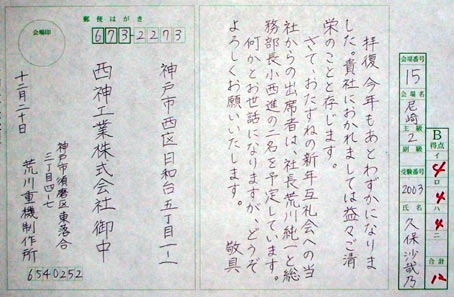 郵便はがき
会場印
673-2273
神戸市西区日和台五丁目一-一
西神工業株式会社 御中
十二月二十日
神戸市須磨区東落合
三丁目四-七
荒川重機制作所
6540252
拝復 今年もあとわずかになりま
した。貴社におかれましては益々ご清
栄のことと存じます。
さて、おたずねの新年互礼会への当
社からの出席者は、社長荒川純一と総
務部長小西進の二名を予定しています。
何かとお世話になりますが、どうぞ
よろしくお願いいたします。
敬具
会場番号
15
会場名
尼崎
主級
2
副級
受験番号
2003
氏名
久保沙哉乃
B
得点
イ
4
ロ
4
ハ
4
ニ
合計
12